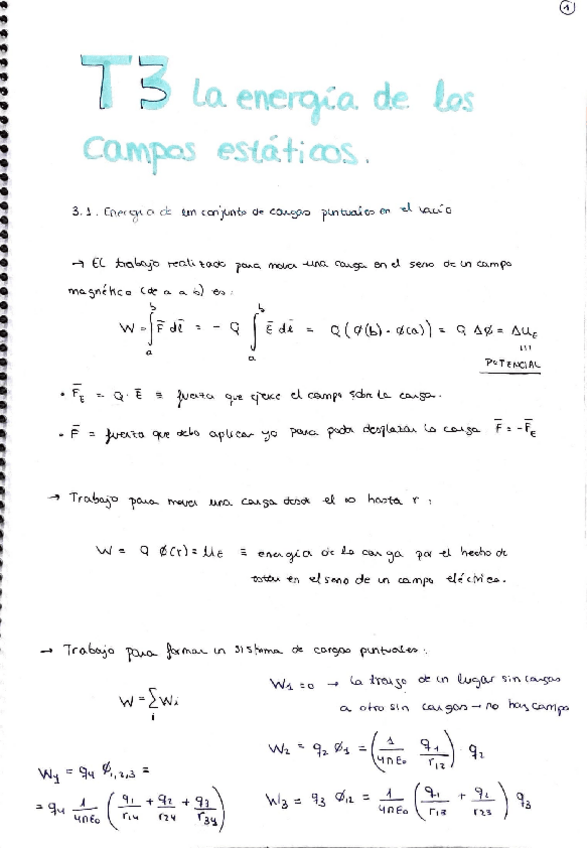 1
T3 la energía de los
campos estáticos.
3.1. Energía de un conjunto de cargas puntuales en el vacío
→ El trabajo realizado para mover una carga en el seno de un campo
magnético (de a a b) es:
W = ∫_a^b F̄ dl̄ = - Q ∫_a^b Ē dl̄ = Q (Ø(b) - Ø(a)) = Q ΔØ = ΔU_E
POTENCIAL
• F̄_E = Q · Ē ≡ fuerza que ejerce el campo sobre la carga.
• F̄ = fuerza que debo aplicar yo para poder desplazar la carga F̄ = -F̄_E
→ Trabajo para mover una carga desde el ∞ hasta r :
W = Q Ø(r) = U_E ≡ energía de la carga por el hecho de
estar en el seno de un campo eléctrico.
→ Trabajo para formar un sistema de cargas puntuales:
W = Σ_i W_i
W_1 = 0 → la traigo de un lugar sin cargas
a otro sin cargas → no hay campo
W_2 = q_2 Ø_1 = (1/4πε_0 q_1/r_12) · q_2
W_3 = q_3 Ø_12 = 1/4πε_0 (q_1/r_13 + q_2/r_23) q_3
W_4 = q_4 Ø_1,2,3 =
= q_4 1/4πε_0 (q_1/r_14 + q_2/r_24 + q_3/r_34)